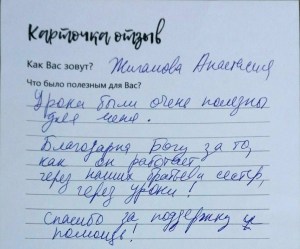 Карточка отзыв
Как Вас зовут? Жигамова Анастасия
Что было полезным для Вас?
Уроки были очень полезны
для меня.
Благодарна Богу за то,
как он работает
через наших братьев и сестёр,
через уроки!
Спасибо за поддержку и
помощь!